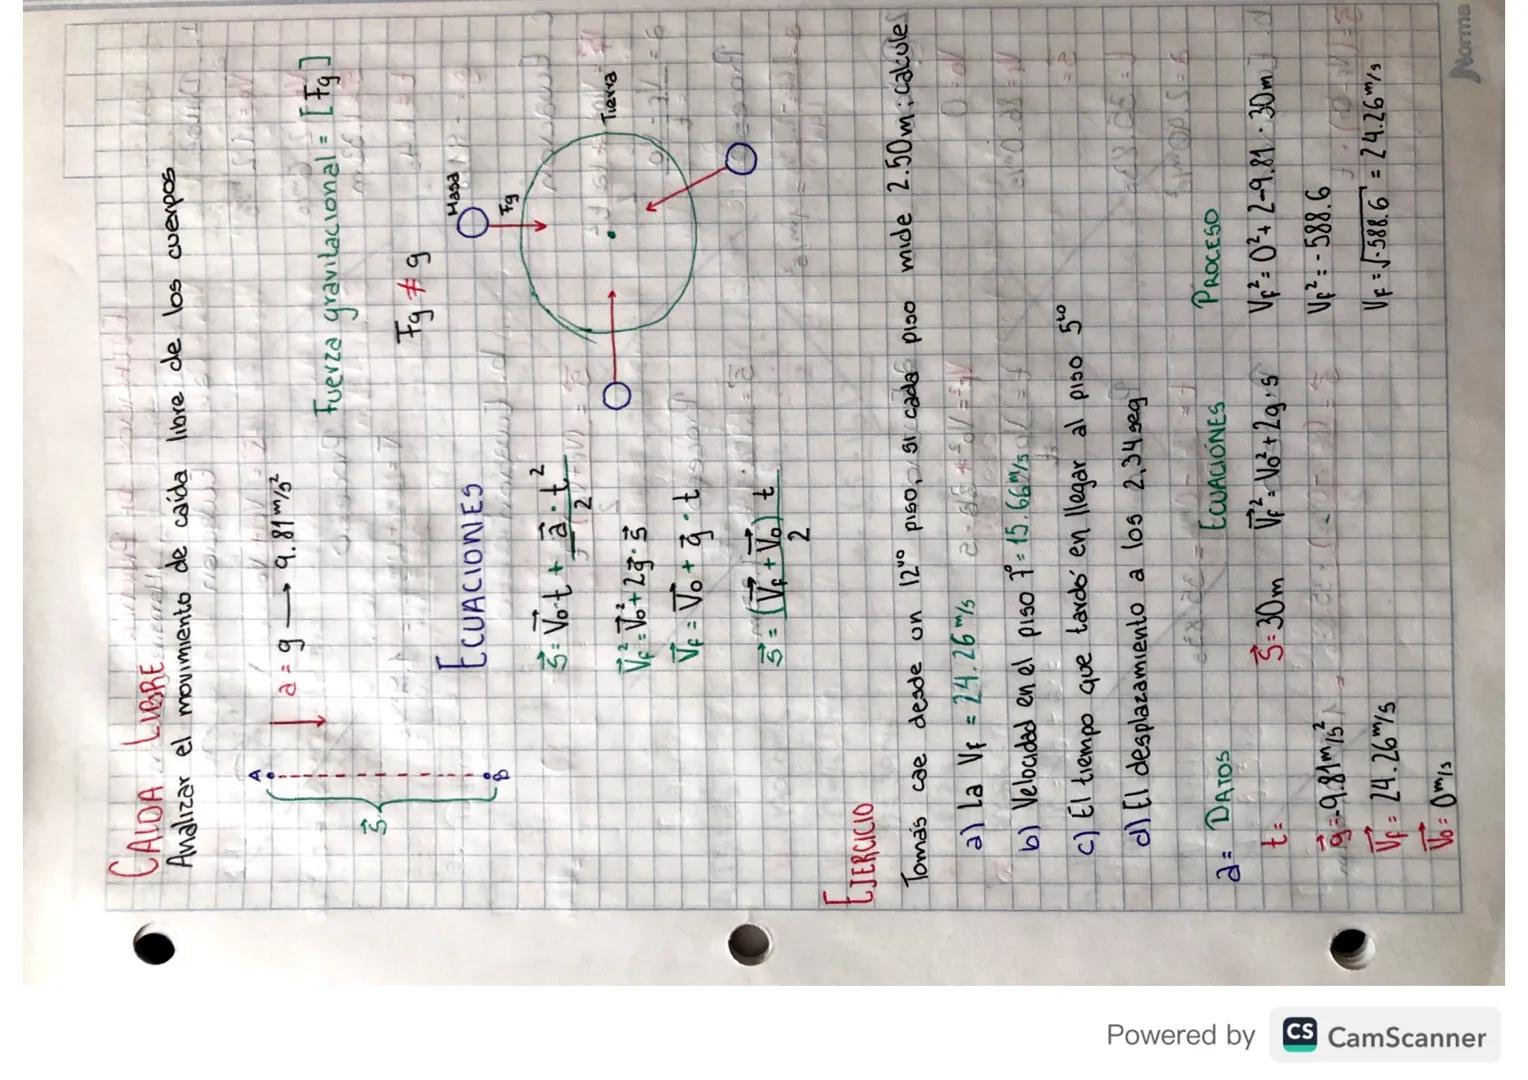 CAIDA LIBRE
Analizar el movimiento de caída libre de los cuerpos
A
B
S⃗
a = g → 9.81 m/s²
Fuerza gravitacional = [Fg]
Fg ≠ g
Masa
Fg
Tierra
ECUACIONES
S⃗ = V⃗o·t + a⃗·t²/2
V⃗f² = V⃗o² + 2g⃗·s⃗
V⃗f = V⃗o + g⃗·t
S⃗ = (V⃗f + V⃗o) t/2
EJERCICIO
Tomás cae desde un 12vo piso, si cada piso mide 2.50m; calcule
a) La Vf = 24.26 m/s
b) Velocidad en el piso 7° = 15.66 m/s
c) El tiempo que tardó en llegar al piso 5to
d) El desplazamiento a los 2,34 seg
a= DATOS
t= S⃗= 30m
g⃗=-9.81m/s²
V⃗f= 24.26 m/s
V⃗o= 0 m/s
ECUACIONES
V⃗f² = Vo² + 2g·s
PROCESO
Vf² = 0² + 2-9.81·30m
Vf² = -588.6
Vf = √-588.6 = 24.26 m/s
Norma
Powered by CS CamScanner